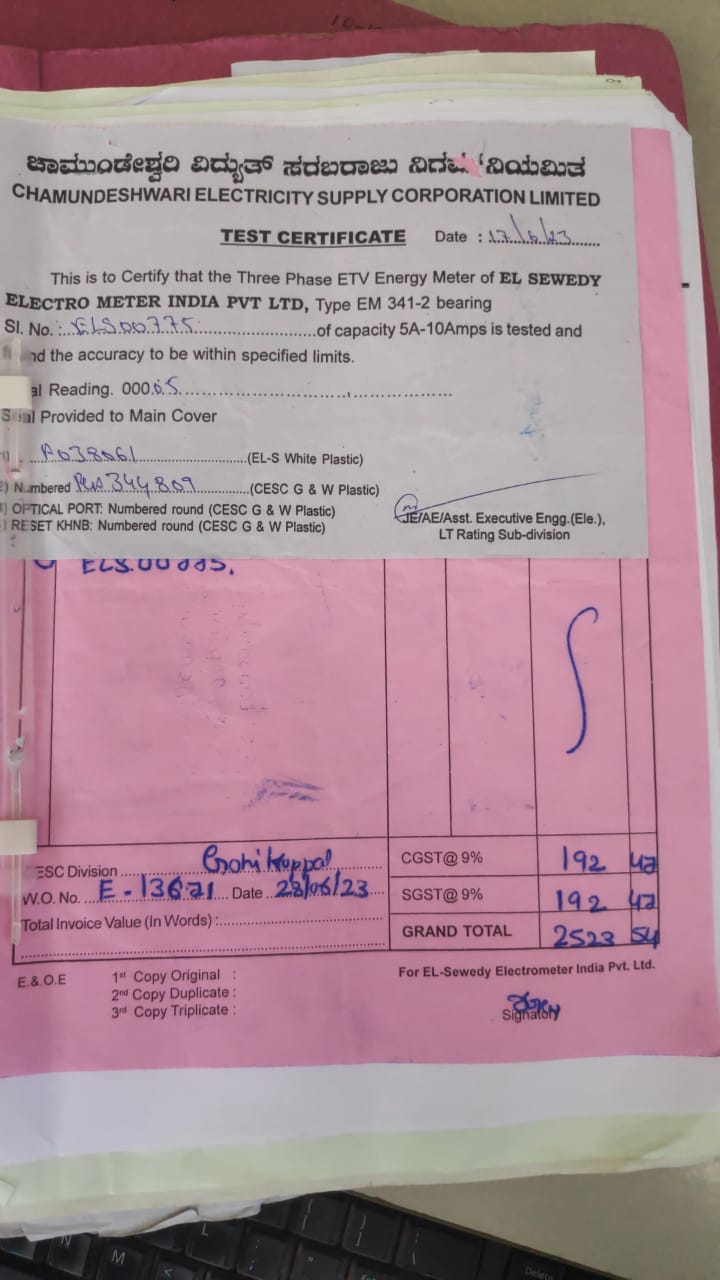 ಚಾಮುಂಡೇಶ್ವರಿ ವಿದ್ಯುತ್ ಸರಬರಾಜು ನಿಗಮ ನಿಯಮಿತ
CHAMUNDESHWARI ELECTRICITY SUPPLY CORPORATION LIMITED
TEST CERTIFICATE Date : 17/6/23
This is to Certify that the Three Phase ETV Energy Meter of EL SEWEDY
ELECTRO METER INDIA PVT LTD, Type EM 341-2 bearing
Sl. No. : ELS00775 of capacity 5A-10Amps is tested and
nd the accuracy to be within specified limits.
al Reading. 000.05
Seal Provided to Main Cover
1) P038061 (EL-S White Plastic)
2) Numbered 344809 (CESC G & W Plastic)
) OPTICAL PORT: Numbered round (CESC G & W Plastic)
) RESET KHNB: Numbered round (CESC G & W Plastic)
JE/AE/Asst. Executive Engg.(Ele.),
LT Rating Sub-division
ESC Division Goni Koppal CGST@ 9% 192 42
W.O. No. E-13621 Date 28/06/23 SGST@ 9% 192 42
Total Invoice Value (In Words) : GRAND TOTAL 2523 54
E.&.O.E 1st Copy Original : For EL-Sewedy Electrometer India Pvt. Ltd.
2nd Copy Duplicate :
3rd Copy Triplicate : Signatory
N M L Delete